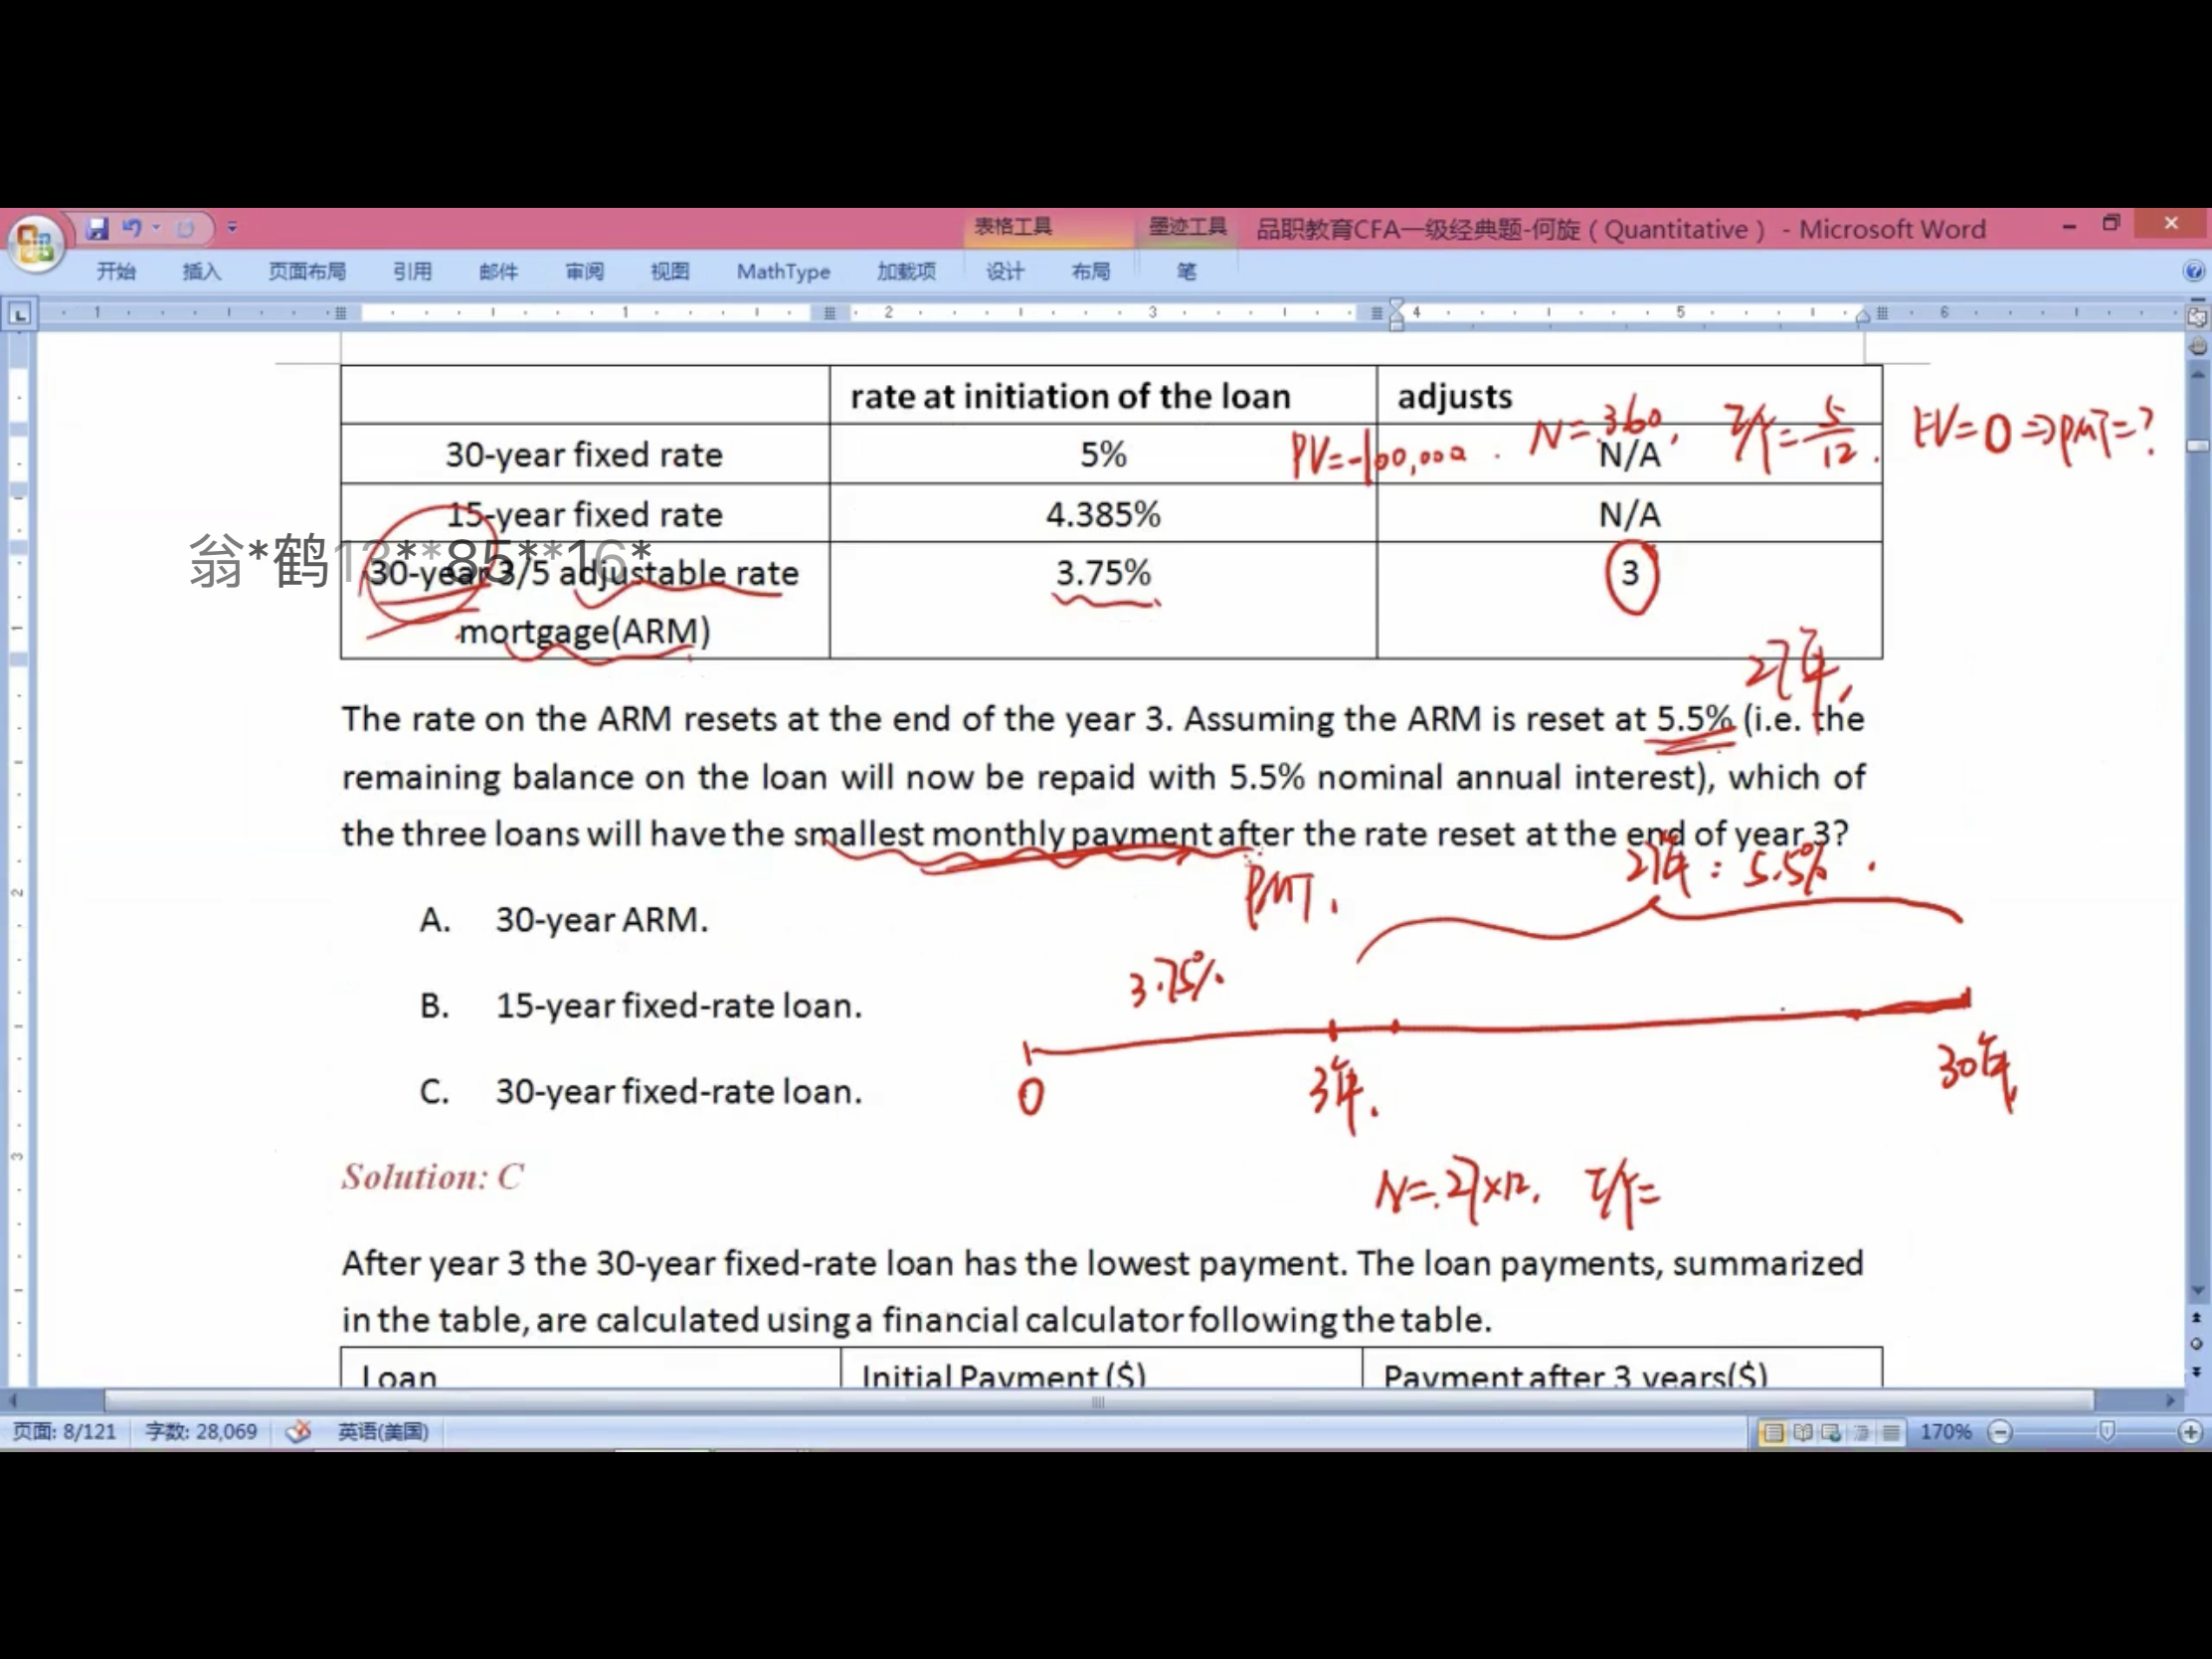 表格工具
墨迹工具
品职教育CFA一级经典题-何旋（Quantitative） - Microsoft Word
开始 插入 页面布局 引用 邮件 审阅 视图 MathType 加载项 设计 布局 笔
1 1 2 3 4 5 6
rate at initiation of the loan adjusts
30-year fixed rate 5% N/A
PV=-100,000. N=360, I/Y=5/12. FV=0⇒PMT=?
15-year fixed rate 4.385% N/A
翁*鹤13**85**16*
30-year 3/5 adjustable rate 3.75% 3
mortgage(ARM)
27年,
The rate on the ARM resets at the end of the year 3. Assuming the ARM is reset at 5.5% (i.e. the
remaining balance on the loan will now be repaid with 5.5% nominal annual interest), which of
the three loans will have the smallest monthly payment after the rate reset at the end of year 3?
27年: 5.5%.
PMT.
A. 30-year ARM.
3.75%
B. 15-year fixed-rate loan.
C. 30-year fixed-rate loan.
0 3年. 30年
Solution: C
N=27×12, I/Y=
After year 3 the 30-year fixed-rate loan has the lowest payment. The loan payments, summarized
in the table, are calculated using a financial calculator following the table.
Loan Initial Payment ($) Payment after 3 years($)
页面: 8/121 字数: 28,069 英语(美国) 170%
1
2
3